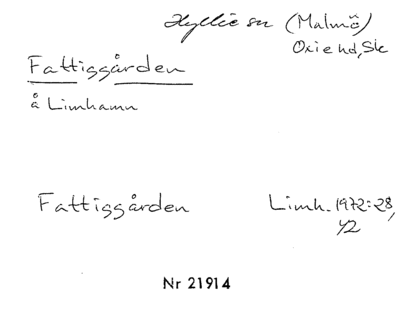 Hyllie sn (Malmö)
Oxie hd, Sk
Fattiggården
å Limhamn
Fattiggården Limh. 1972:28,
42
Nr 21914